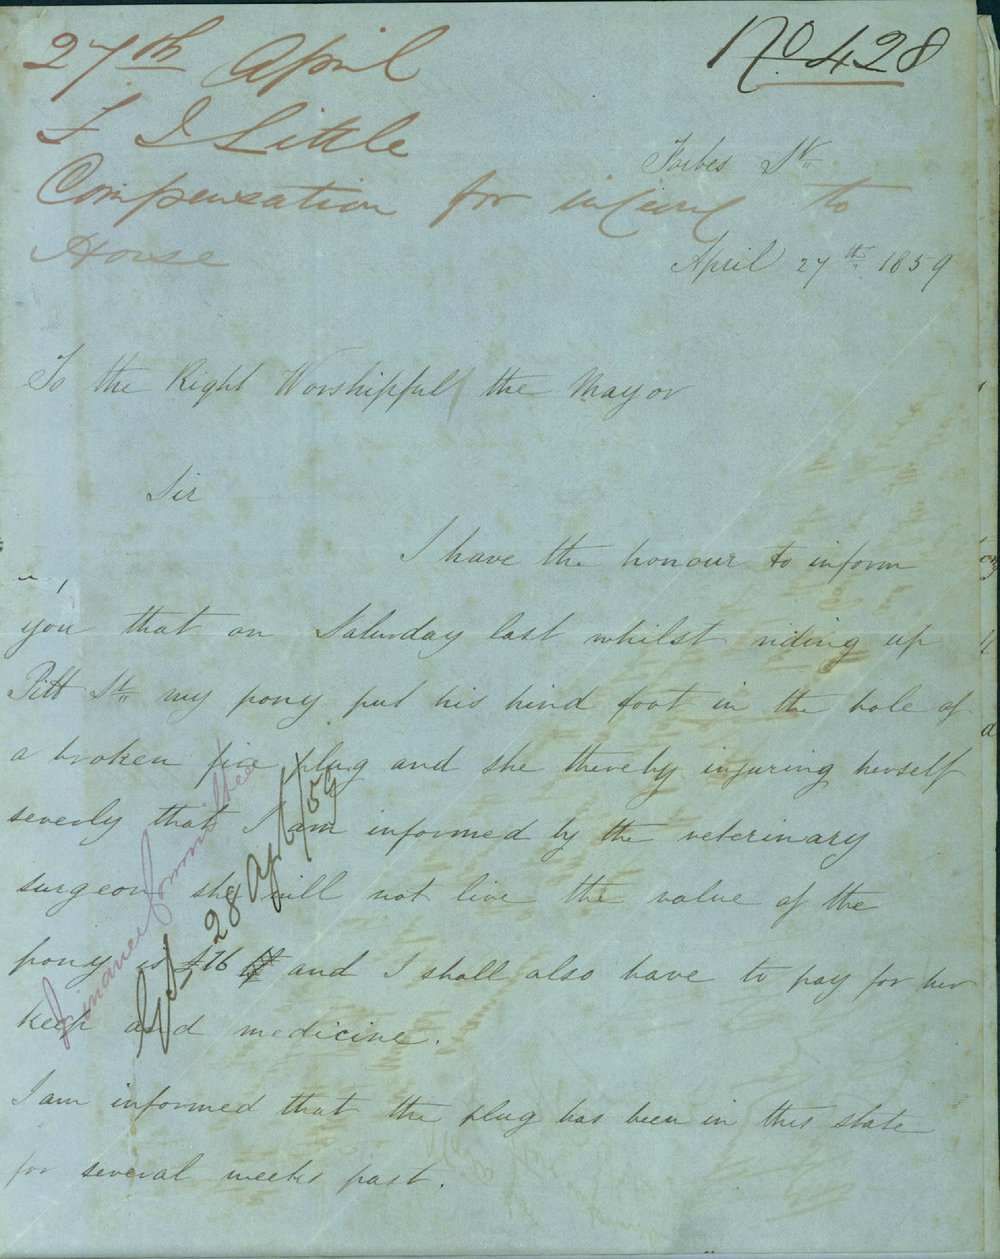 27th April
F I Little
Compensation for injury to
Horse
No 428
Forbes St
April 27th 1859
To the Right Worshipfull the Mayor
Sir
I have the honour to inform
you that on Saturday last whilst riding up
Pitt St my pony put his hind foot in the hole of
a broken fire plug and she thereby injuring herself
severly that I am informed by the veterinary
surgeon she will not live the value of the
pony is £16 and I shall also have to pay for her
keep and medicine.
I am informed that the plug has been in this state
for several weeks past.
Finance Committee
28 Apl/59